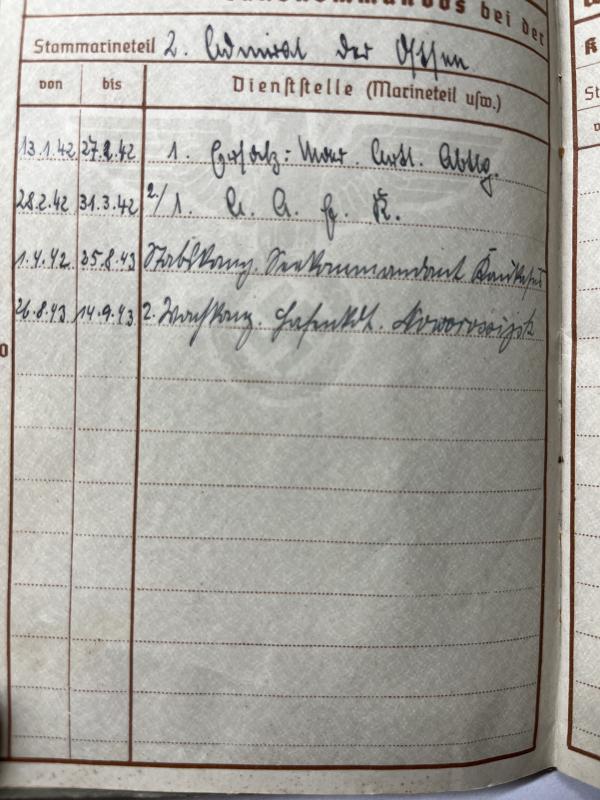 bei der
Stammarineteil 2. Admiral der Ostsee
von bis Dienststelle (Marineteil usw.)
13.1.42 27.2.42 1. Ersatz: Mar. Artl. Abtlg.
28.2.42 31.3.42 2/1. A. A. E. K.
1.4.42 25.8.43 Stabskomp. Seekommandant Kaukasus
26.8.43 14.9.43 2. Wachkomp. Hafenkdt. Noworossijsk